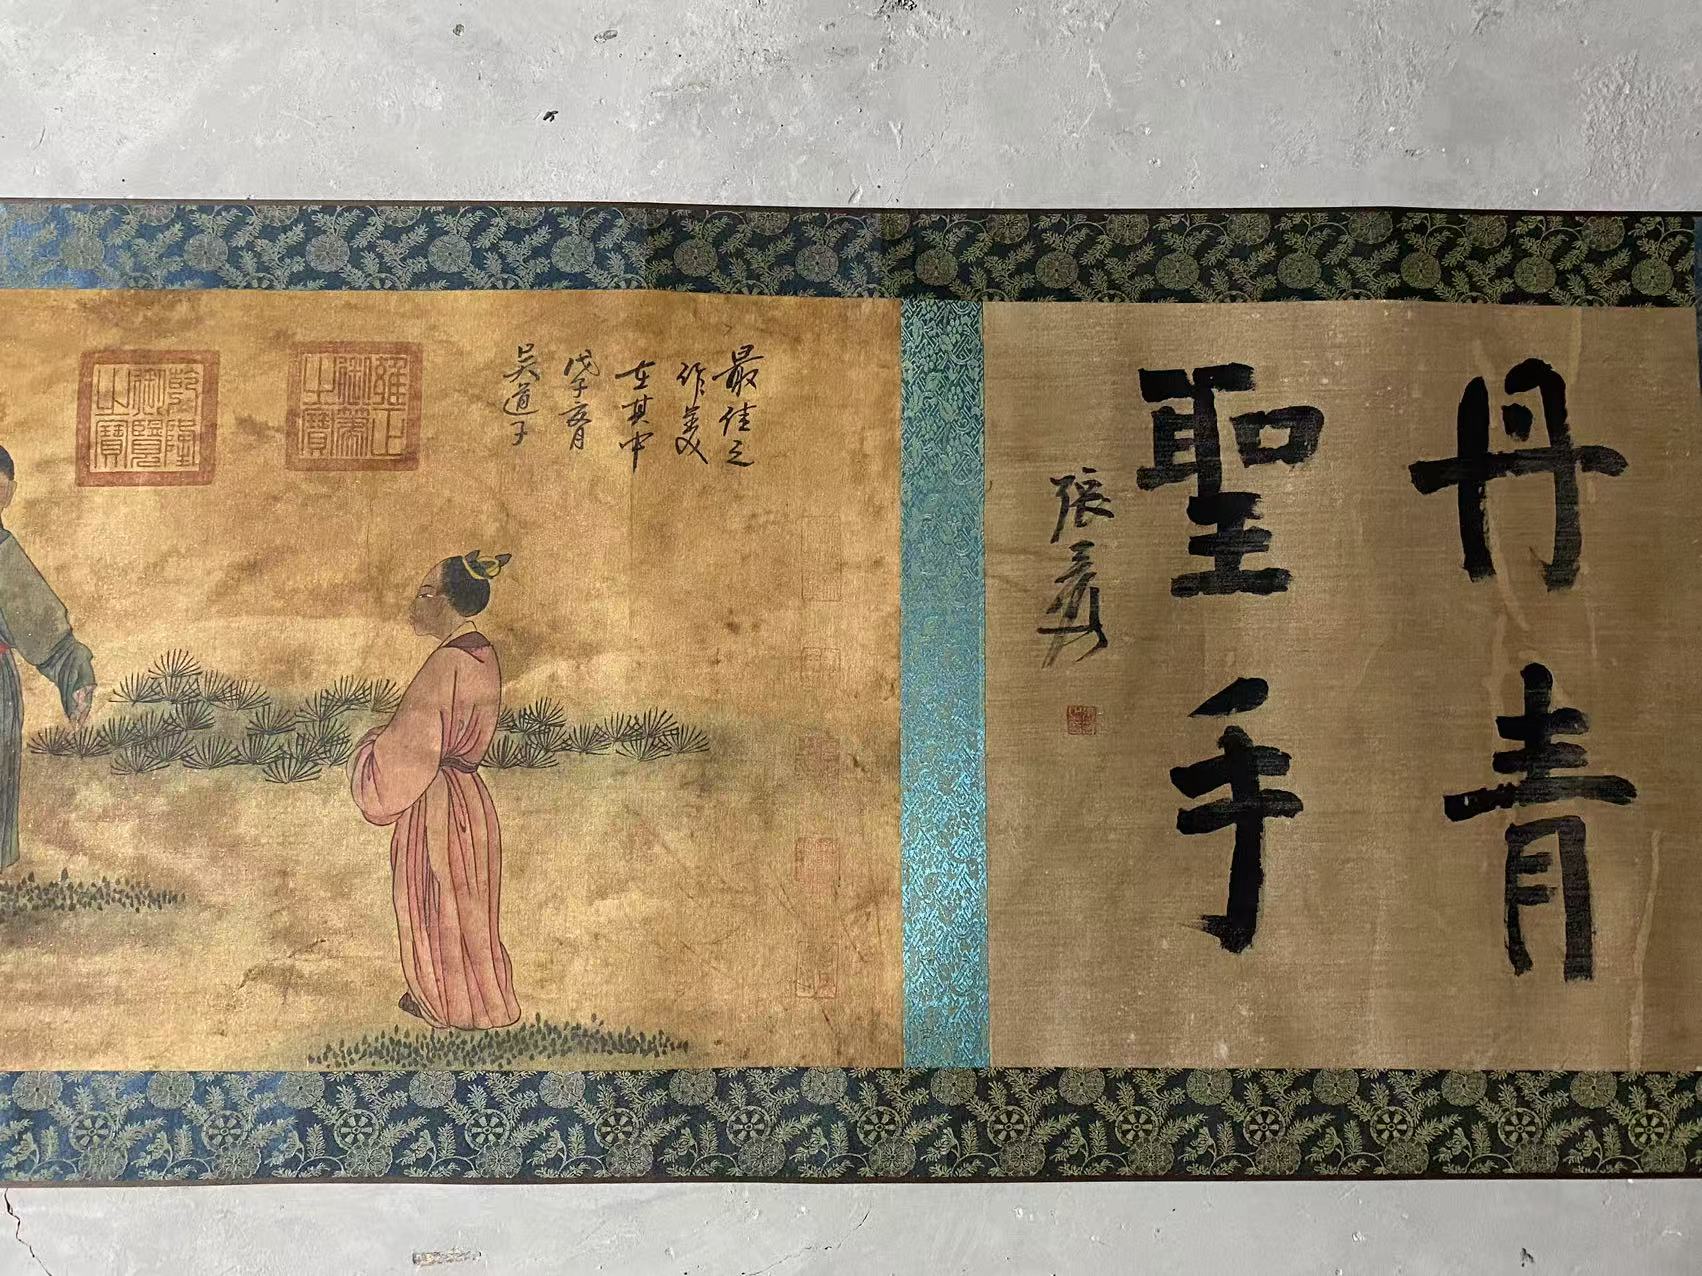 丹青
聖手
張爰
最佳之
作美
在其中
戊子
吴道子
雍正御之寶
乾隆御覽之寶